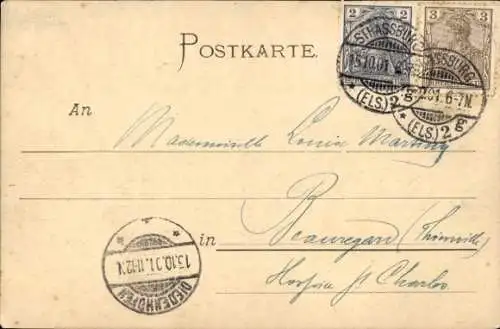 2 3
POSTKARTE.
STRASSBURG
15.10.01
(ELS.) 2 g
STRASSBURG
01. 6-7N.
(ELS.) 2 g
An
Mademoiselle Louise Martiny
in Beauregard (Thionville)
Hospice St Charles
15.10.01. 11-12N.
DIEDENHOFEN